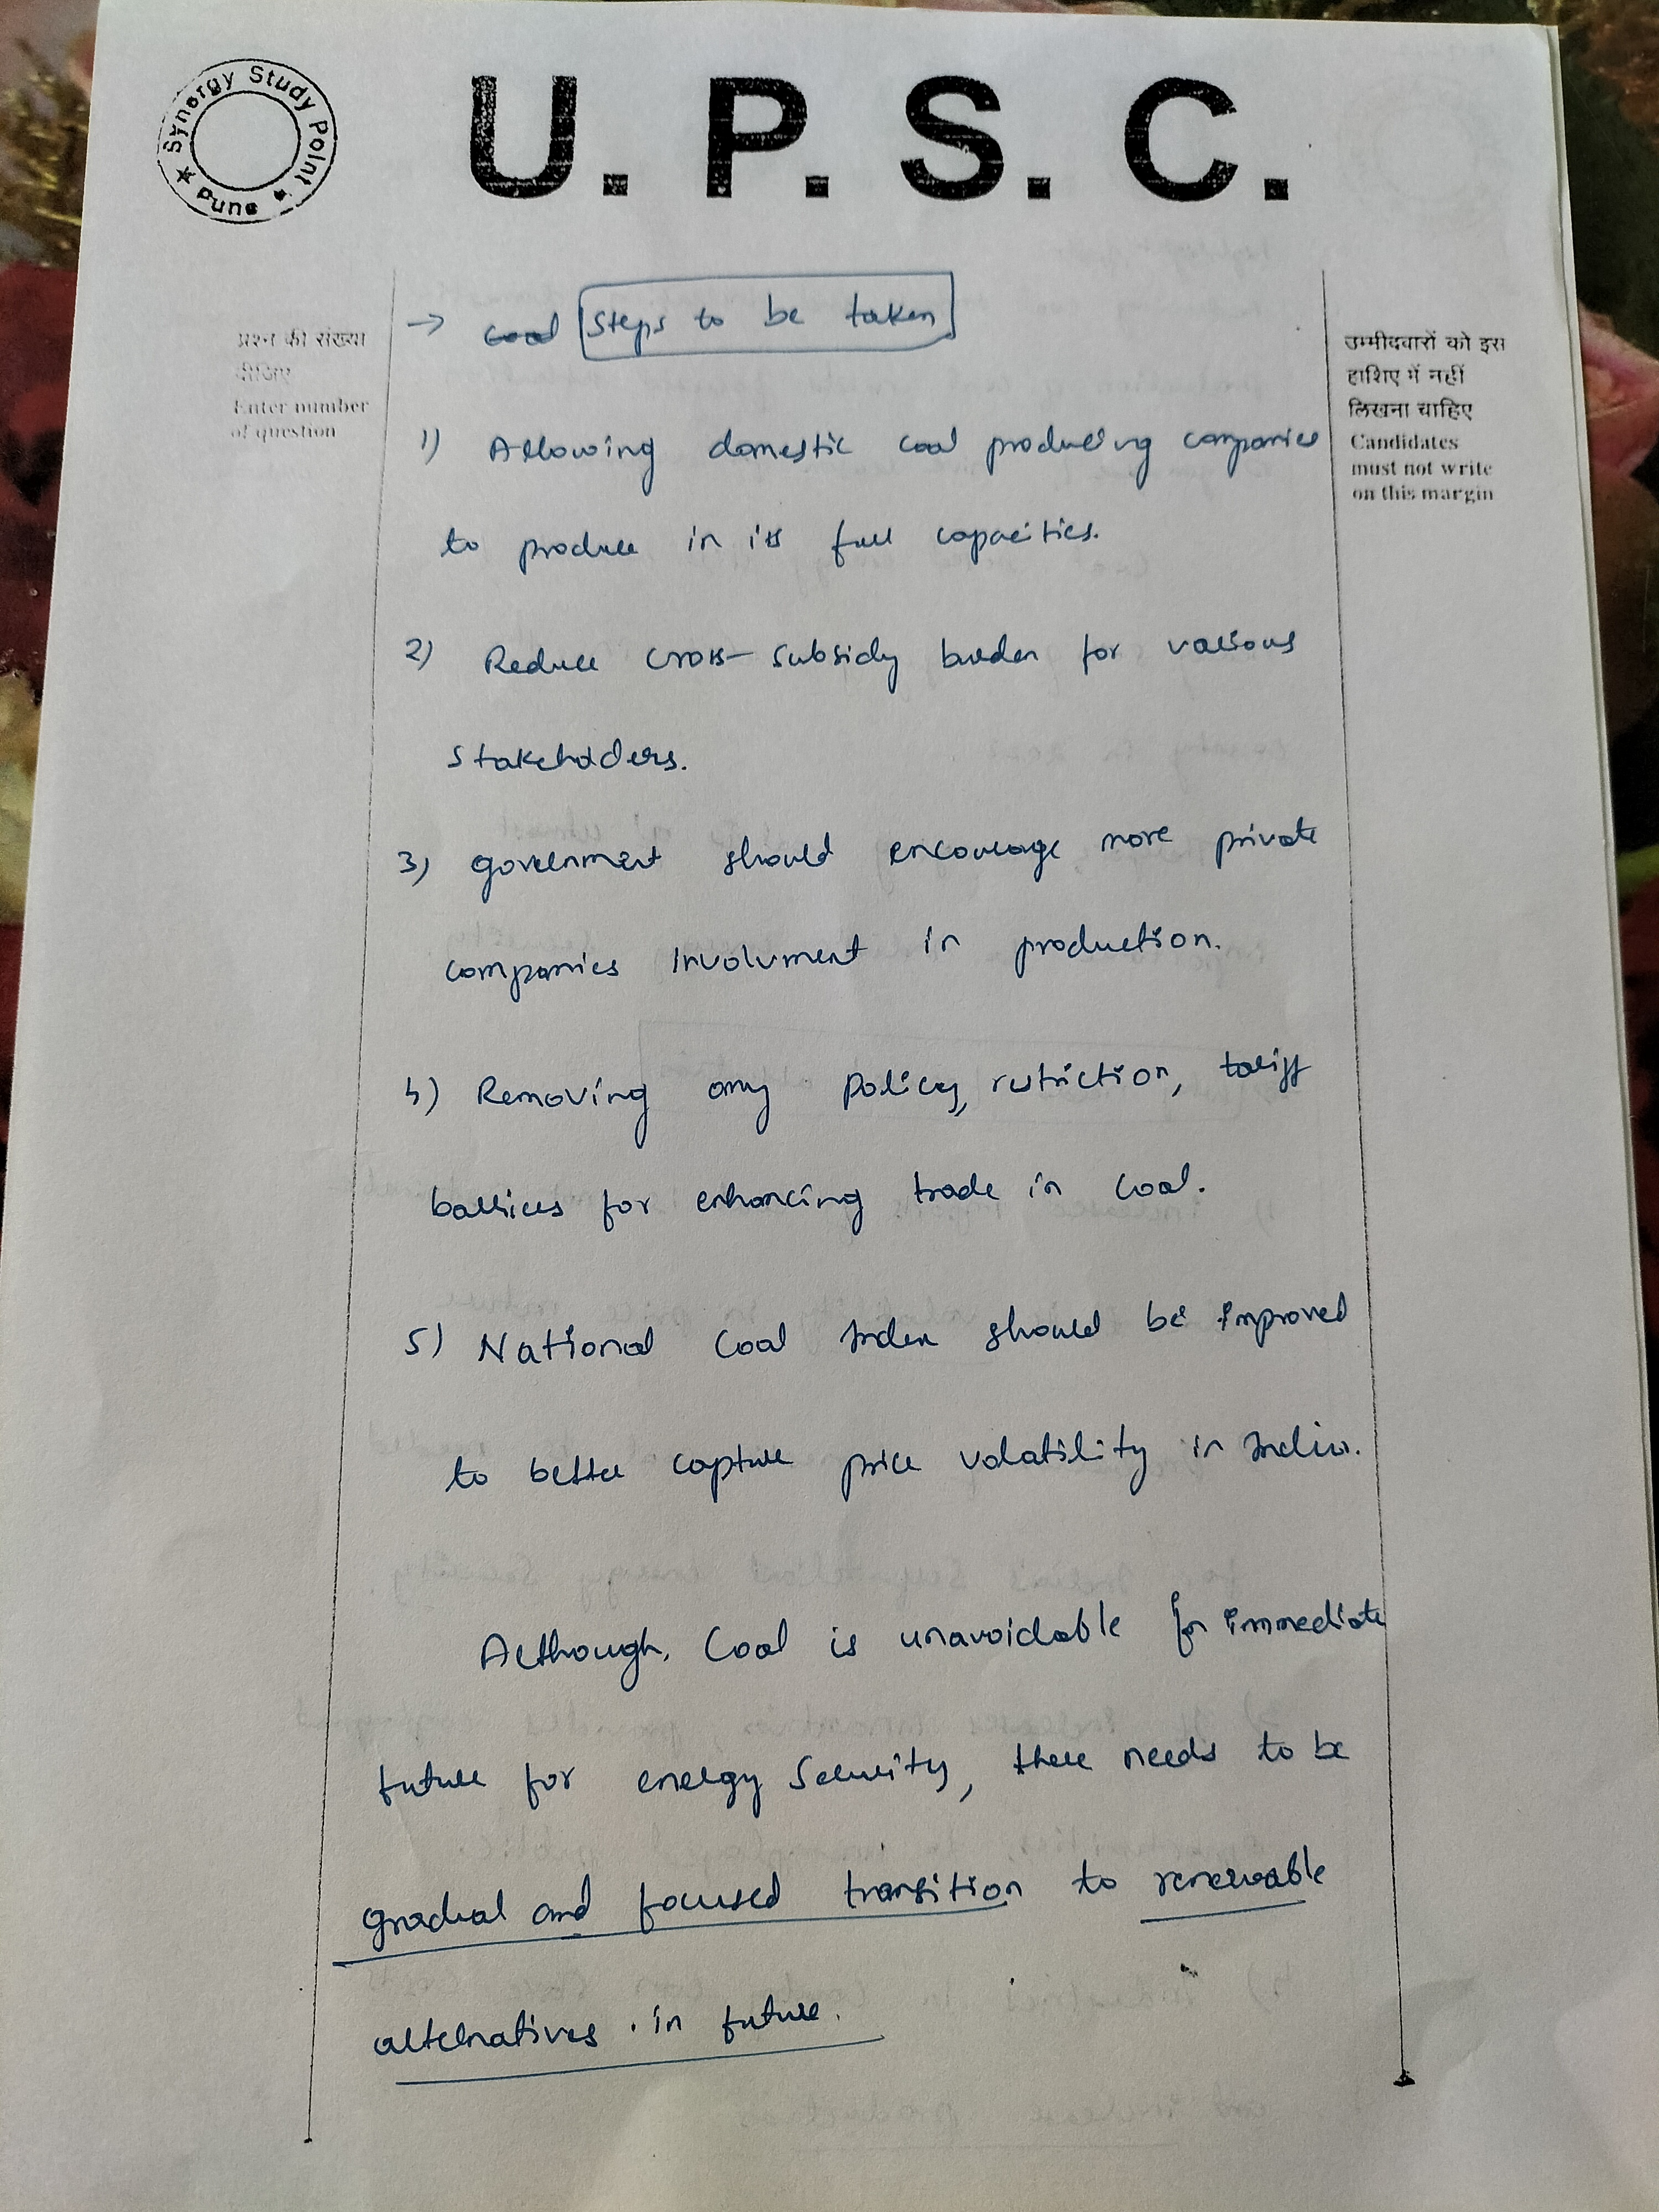 Synergy Study Point
Pune
U. P. S. C.
प्रश्न की संख्या
दीजिए
Enter number
of question
उम्मीदवारों को इस
हाशिए में नहीं
लिखना चाहिए
Candidates
must not write
on this margin
→ Coal Steps to be taken
1) Allowing domestic coal producing companies
to produce in its full capacities.
2) Reduce cross-subsidy burden for various
stakeholders.
3) government should encourage more private
companies involvment in production.
4) Removing any policy, restriction, tariff
barriers for enhancing trade in coal.
5) National Coal Index should be improved
to better capture price volatility in India.
Although, Coal is unavoidable for immediate
future for energy security, there needs to be
gradual and focused transition to renewable
alternatives in future.